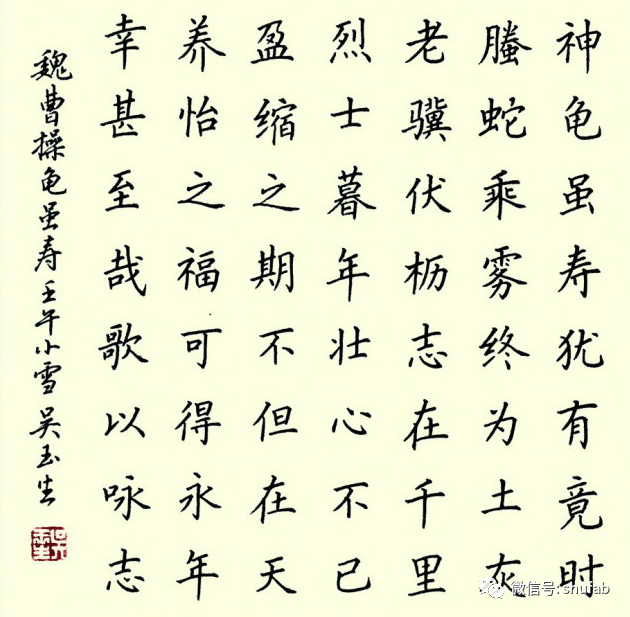 神龟虽寿犹有竟时
螣蛇乘雾终为土灰
老骥伏枥志在千里
烈士暮年壮心不已
盈缩之期不但在天
养怡之福可得永年
幸甚至哉歌以咏志
魏曹操龟虽寿壬午小雪吴玉生
微信号: shufab